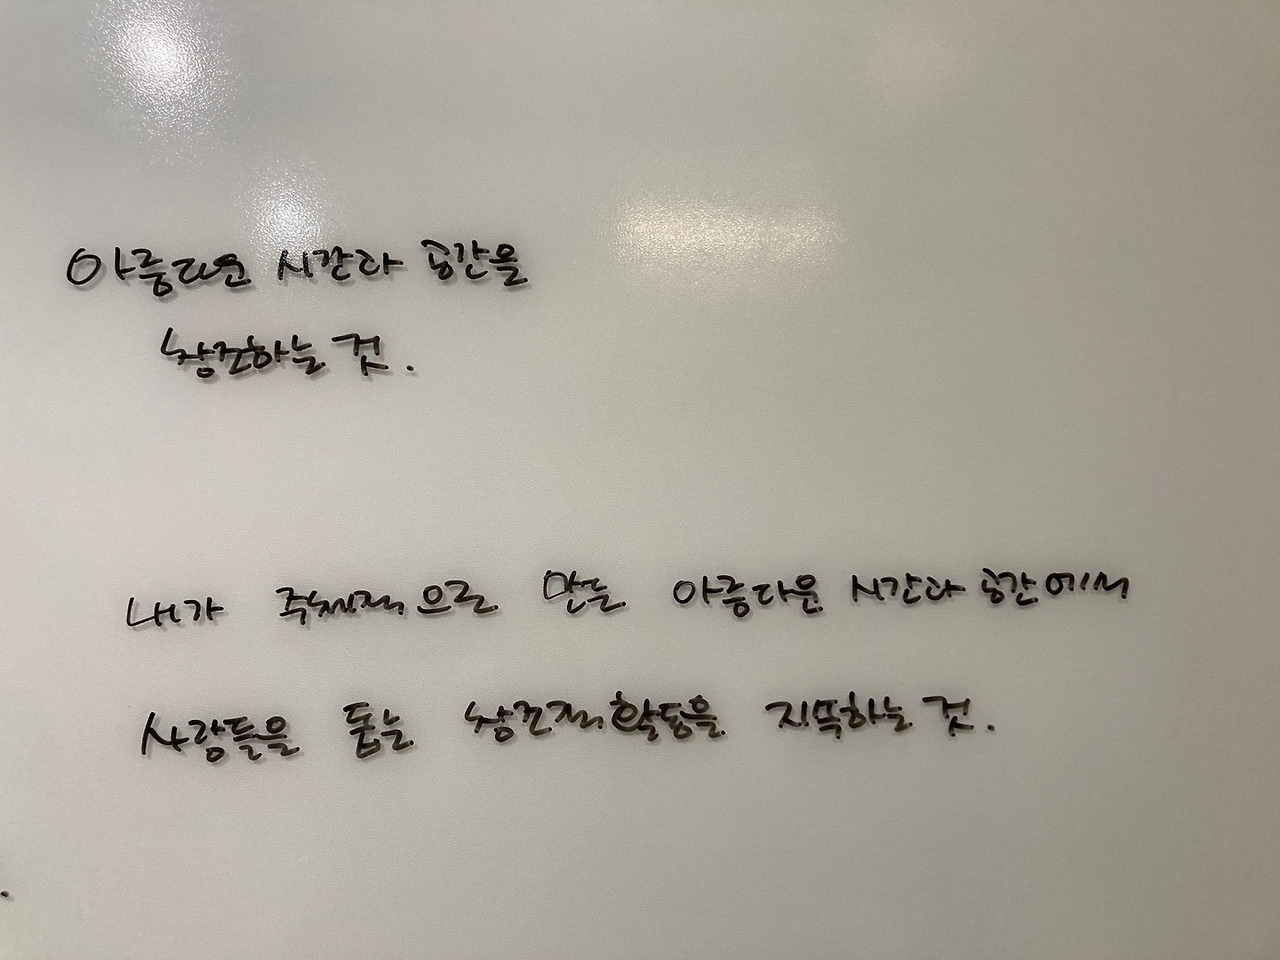 아름다운 시간과 공간을
창조하는 것.
내가 주체적으로 만든 아름다운 시간과 공간에서
사람들을 돕는 창조적 활동을 지속하는 것.